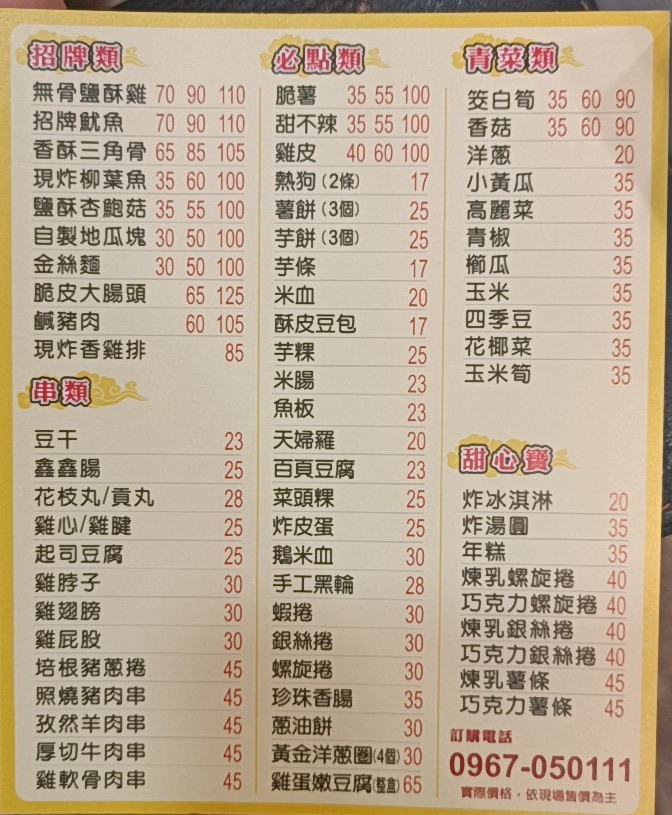 招牌類
無骨鹽酥雞 70 90 110
招牌魷魚 70 90 110
香酥三角骨 65 85 105
現炸柳葉魚 35 60 100
鹽酥杏鮑菇 35 55 100
自製地瓜塊 30 50 100
金絲麵 30 50 100
脆皮大腸頭 65 125
鹹豬肉 60 105
現炸香雞排 85
串類
豆干 23
鑫鑫腸 25
花枝丸/貢丸 28
雞心/雞腱 25
起司豆腐 25
雞脖子 30
雞翅膀 30
雞屁股 30
培根豬蔥捲 45
照燒豬肉串 45
孜然羊肉串 45
厚切牛肉串 45
雞軟骨肉串 45
必點類
脆薯 35 55 100
甜不辣 35 55 100
雞皮 40 60 100
熱狗(2條) 17
薯餅(3個) 25
芋餅(3個) 25
芋條 17
米血 20
酥皮豆包 17
芋粿 25
米腸 23
魚板 23
天婦羅 20
百頁豆腐 23
菜頭粿 25
炸皮蛋 25
鵝米血 30
手工黑輪 28
蝦捲 30
銀絲捲 30
螺旋捲 30
珍珠香腸 35
蔥油餅 30
黃金洋蔥圈(4個) 30
雞蛋嫩豆腐(整盒) 65
青菜類
筊白筍 35 60 90
香菇 35 60 90
洋蔥 20
小黃瓜 35
高麗菜 35
青椒 35
櫛瓜 35
玉米 35
四季豆 35
花椰菜 35
玉米筍 35
甜心寶
炸冰淇淋 20
炸湯圓 35
年糕 35
煉乳螺旋捲 40
巧克力螺旋捲 40
煉乳銀絲捲 40
巧克力銀絲捲 40
煉乳薯條 45
巧克力薯條 45
訂購電話
0967-050111
實際價格，依現場售價為主